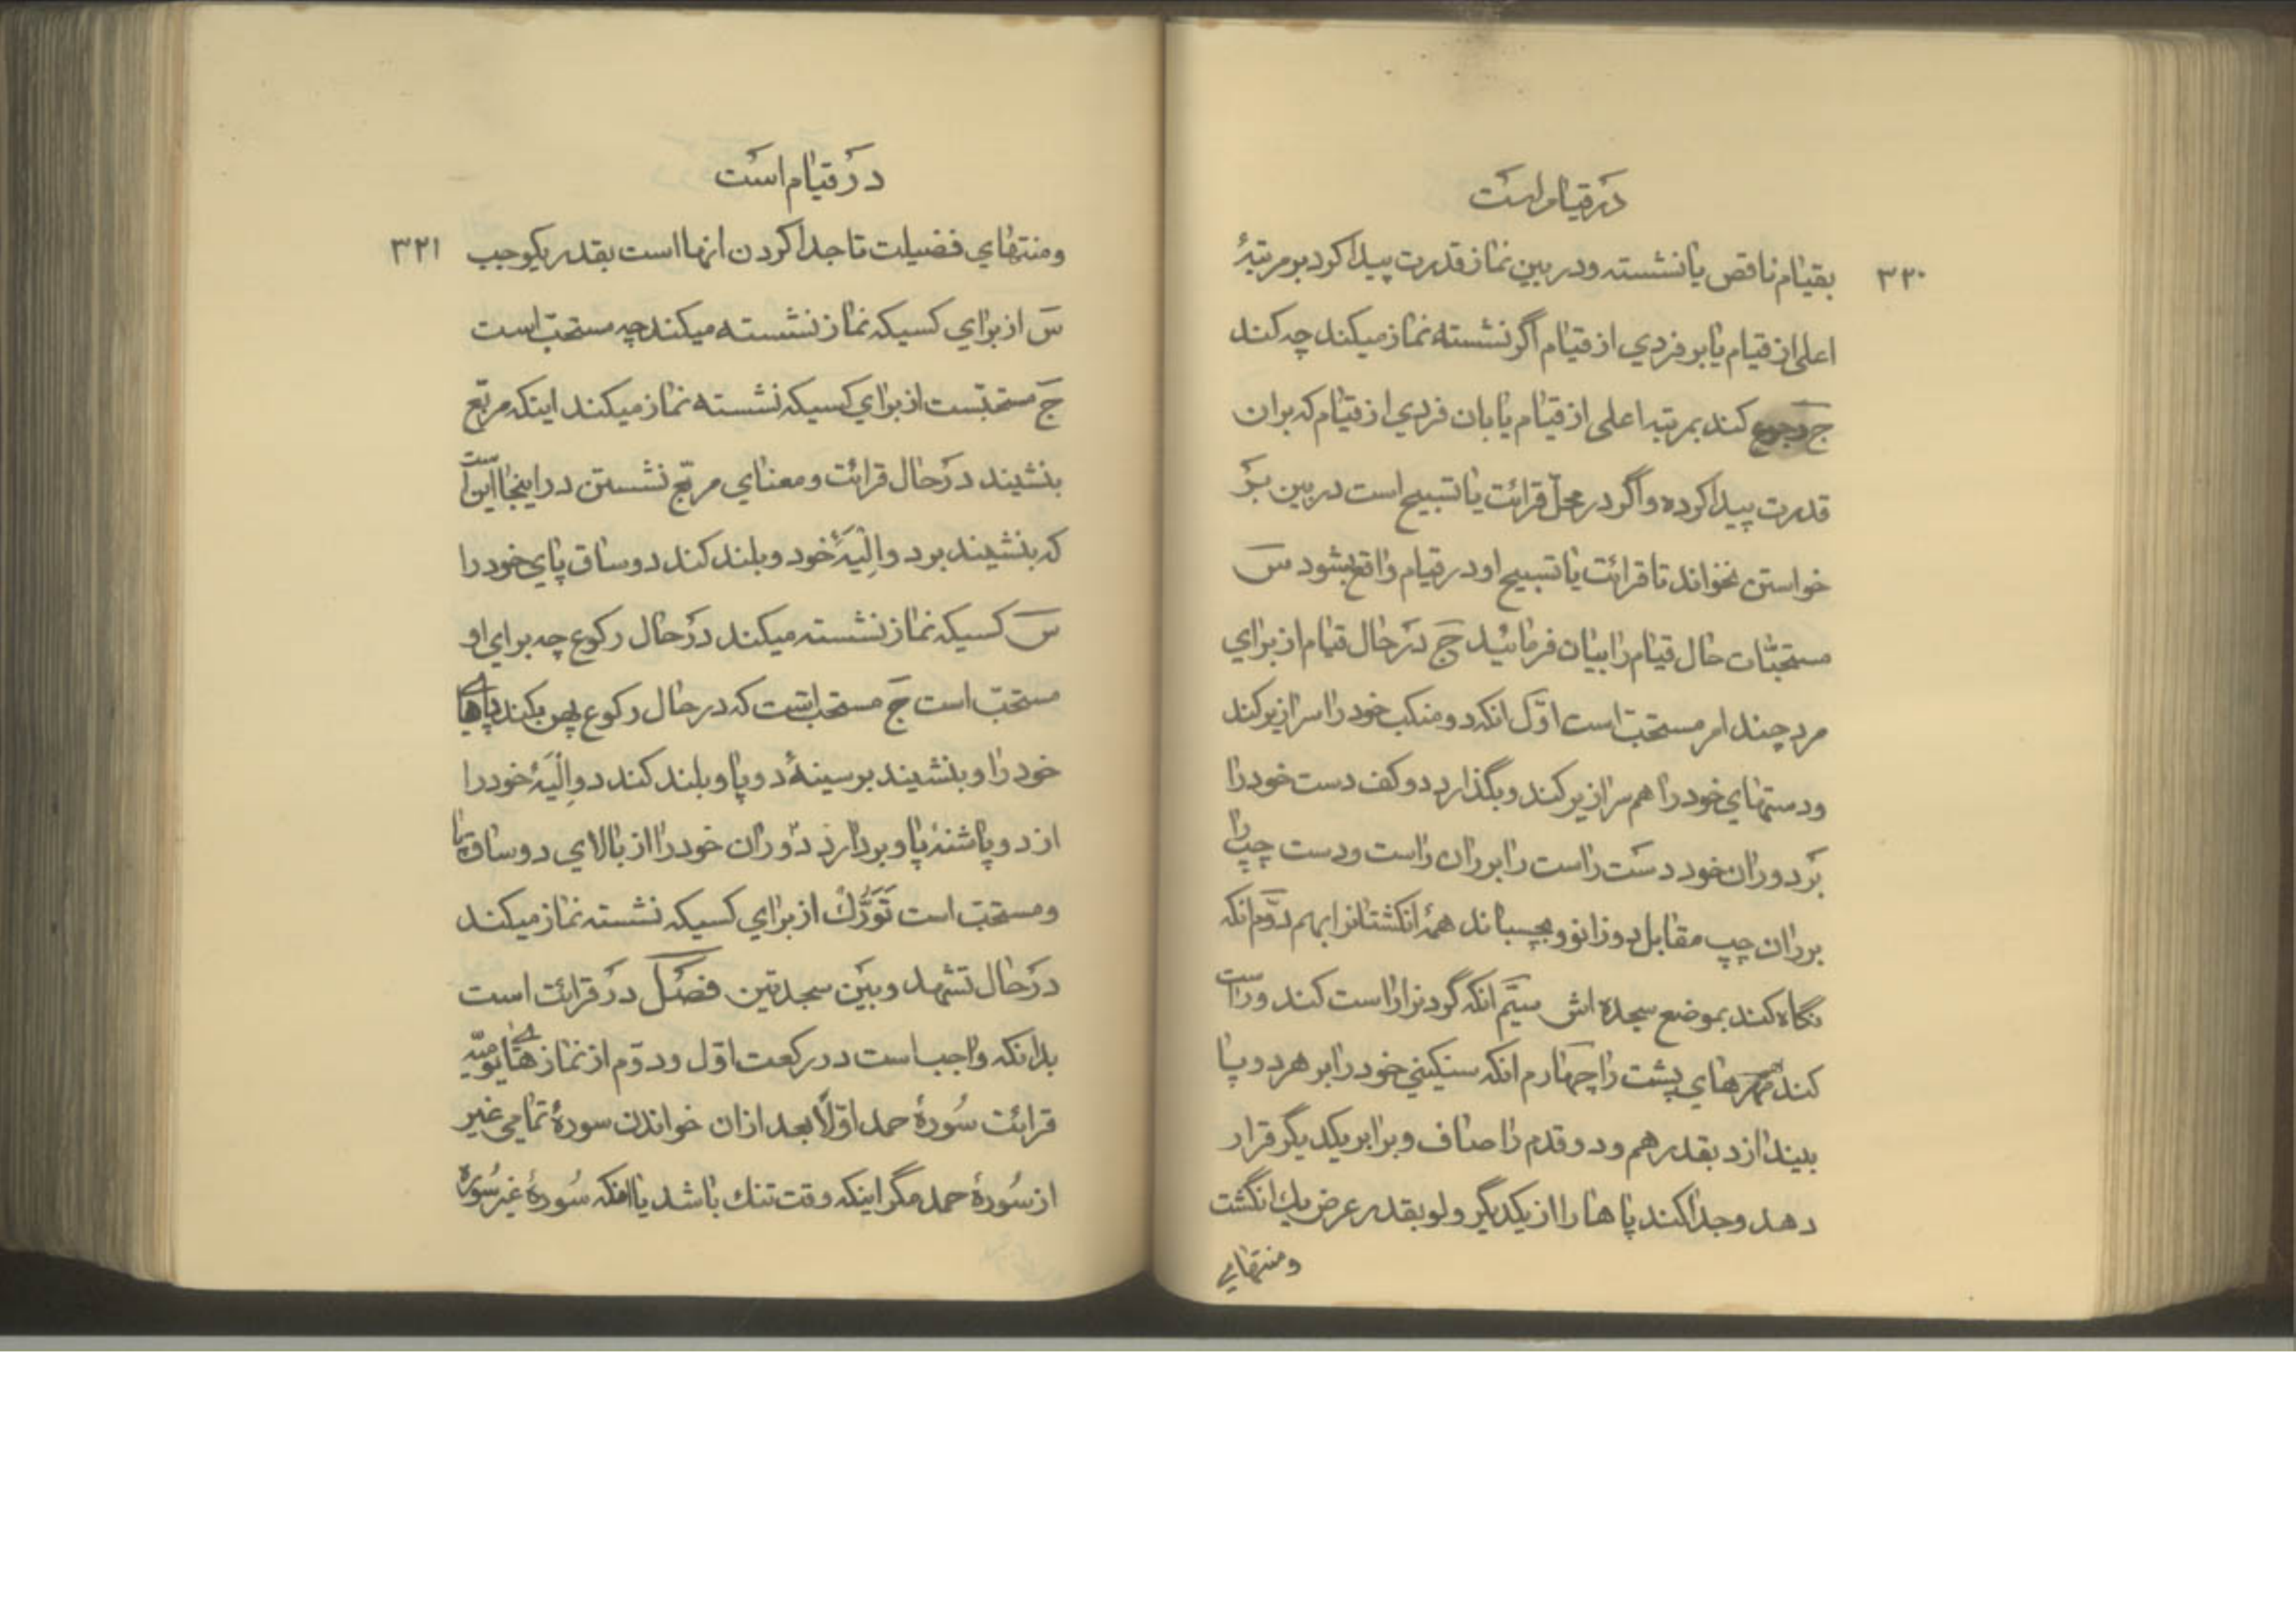 در قیام است
۳۲۰
بقیام ناقص یا نشسته و در بین نماز قدرت پیدا کرد بر مرتبهٔ
اعلی از قیام یا بر فردی از قیام اگر نشسته نماز میکند چه کند
ج رجوع کند بمرتبه اعلی از قیام یا بان فردی از قیام که بران
قدرت پیدا کرده و اگر در محل قرائت یا تسبیح است در بین بر
خواستن نخواند تا قرائت یا تسبیح او در قیام واقع بشود س
مستحبّات حال قیام را بیان فرمائید ج در حال قیام از برای
مرد چند امر مستحبّ است اوّل انکه دو منکب خود را سرازیر کند
و دستهای خود را هم سرازیر کند و بگذارد دو کف دست خود را
بر دو ران خود دست راست را بر ران راست و دست چپ را
بر ران چپ مقابل دو زانو و بچسباند همهٔ انکشتانرا بهم دوّم انکه
نگاه کند بموضع سجده اش سیّم انکه گردنرا راست کند و راست
کند مهرهای پشت را چهارم انکه سنکینی خود را بر هر دو پا
بیندازد بقدر هم و دو قدم را صاف و برابر یکدیگر قرار
دهد و جدا کند پاها را از یکدیگر و لو بقدر عرض یك انگشت
و منتهای
در قیام است
۳۲۱
و منتهای فضیلت تا جدا کردن انها است بقدر یکوجب
س از برای کسیکه نماز نشسته میکند چه مستحبّ است
ج مستحبّست از برای کسیکه نشسته نماز میکند اینکه مربّع
بنشیند در حال قرائت و معنای مربّع نشستن در اینجا این است
که بنشیند بر دو اِلْیَهٔ خود و بلند کند دو ساق پای خود را
س کسیکه نماز نشسته میکند در حال رکوع چه برای او
مستحبّ است ج مستحبّ است که در حال رکوع پهن بکند پاهای
خود را و بنشیند بر سینهٔ دو پا و بلند کند دو اِلْیَهٔ خود را
از دو پاشنهٔ پا و بردارد دو ران خود را از بالای دو ساق پا
و مستحبّ است تَوَرُّكْ از برای کسیکه نشسته نماز میکند
در حال تشهد و بین سجدتین فصل در قرائت است
بدانکه واجب است در رکعت اوّل و دوّم از نمازهای یومیّه
قرائت سُورهٔ حمد اوّلًا بعد ازان خواندن سورهٔ تمامی غیر
از سُورهٔ حمد مگر اینکه وقت تنك باشد یا انکه سُورهٔ غیر سُوره